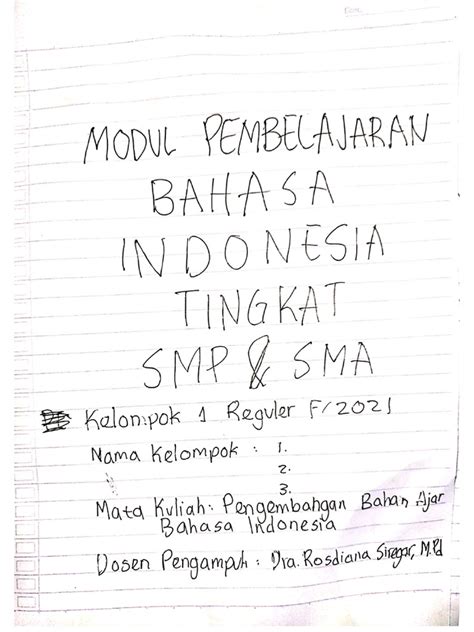 MODUL PEMBELAJARAN
BAHASA
INDONESIA
TINGKAT
SMP & SMA
Kelompok 1 Reguler F/2021
Nama Kelompok : 1.
2.
3.
Mata Kuliah : Pengembangan Bahan Ajar
Bahasa Indonesia
Dosen Pengampuh : Dra. Rosdiana Siregar, M.Pd